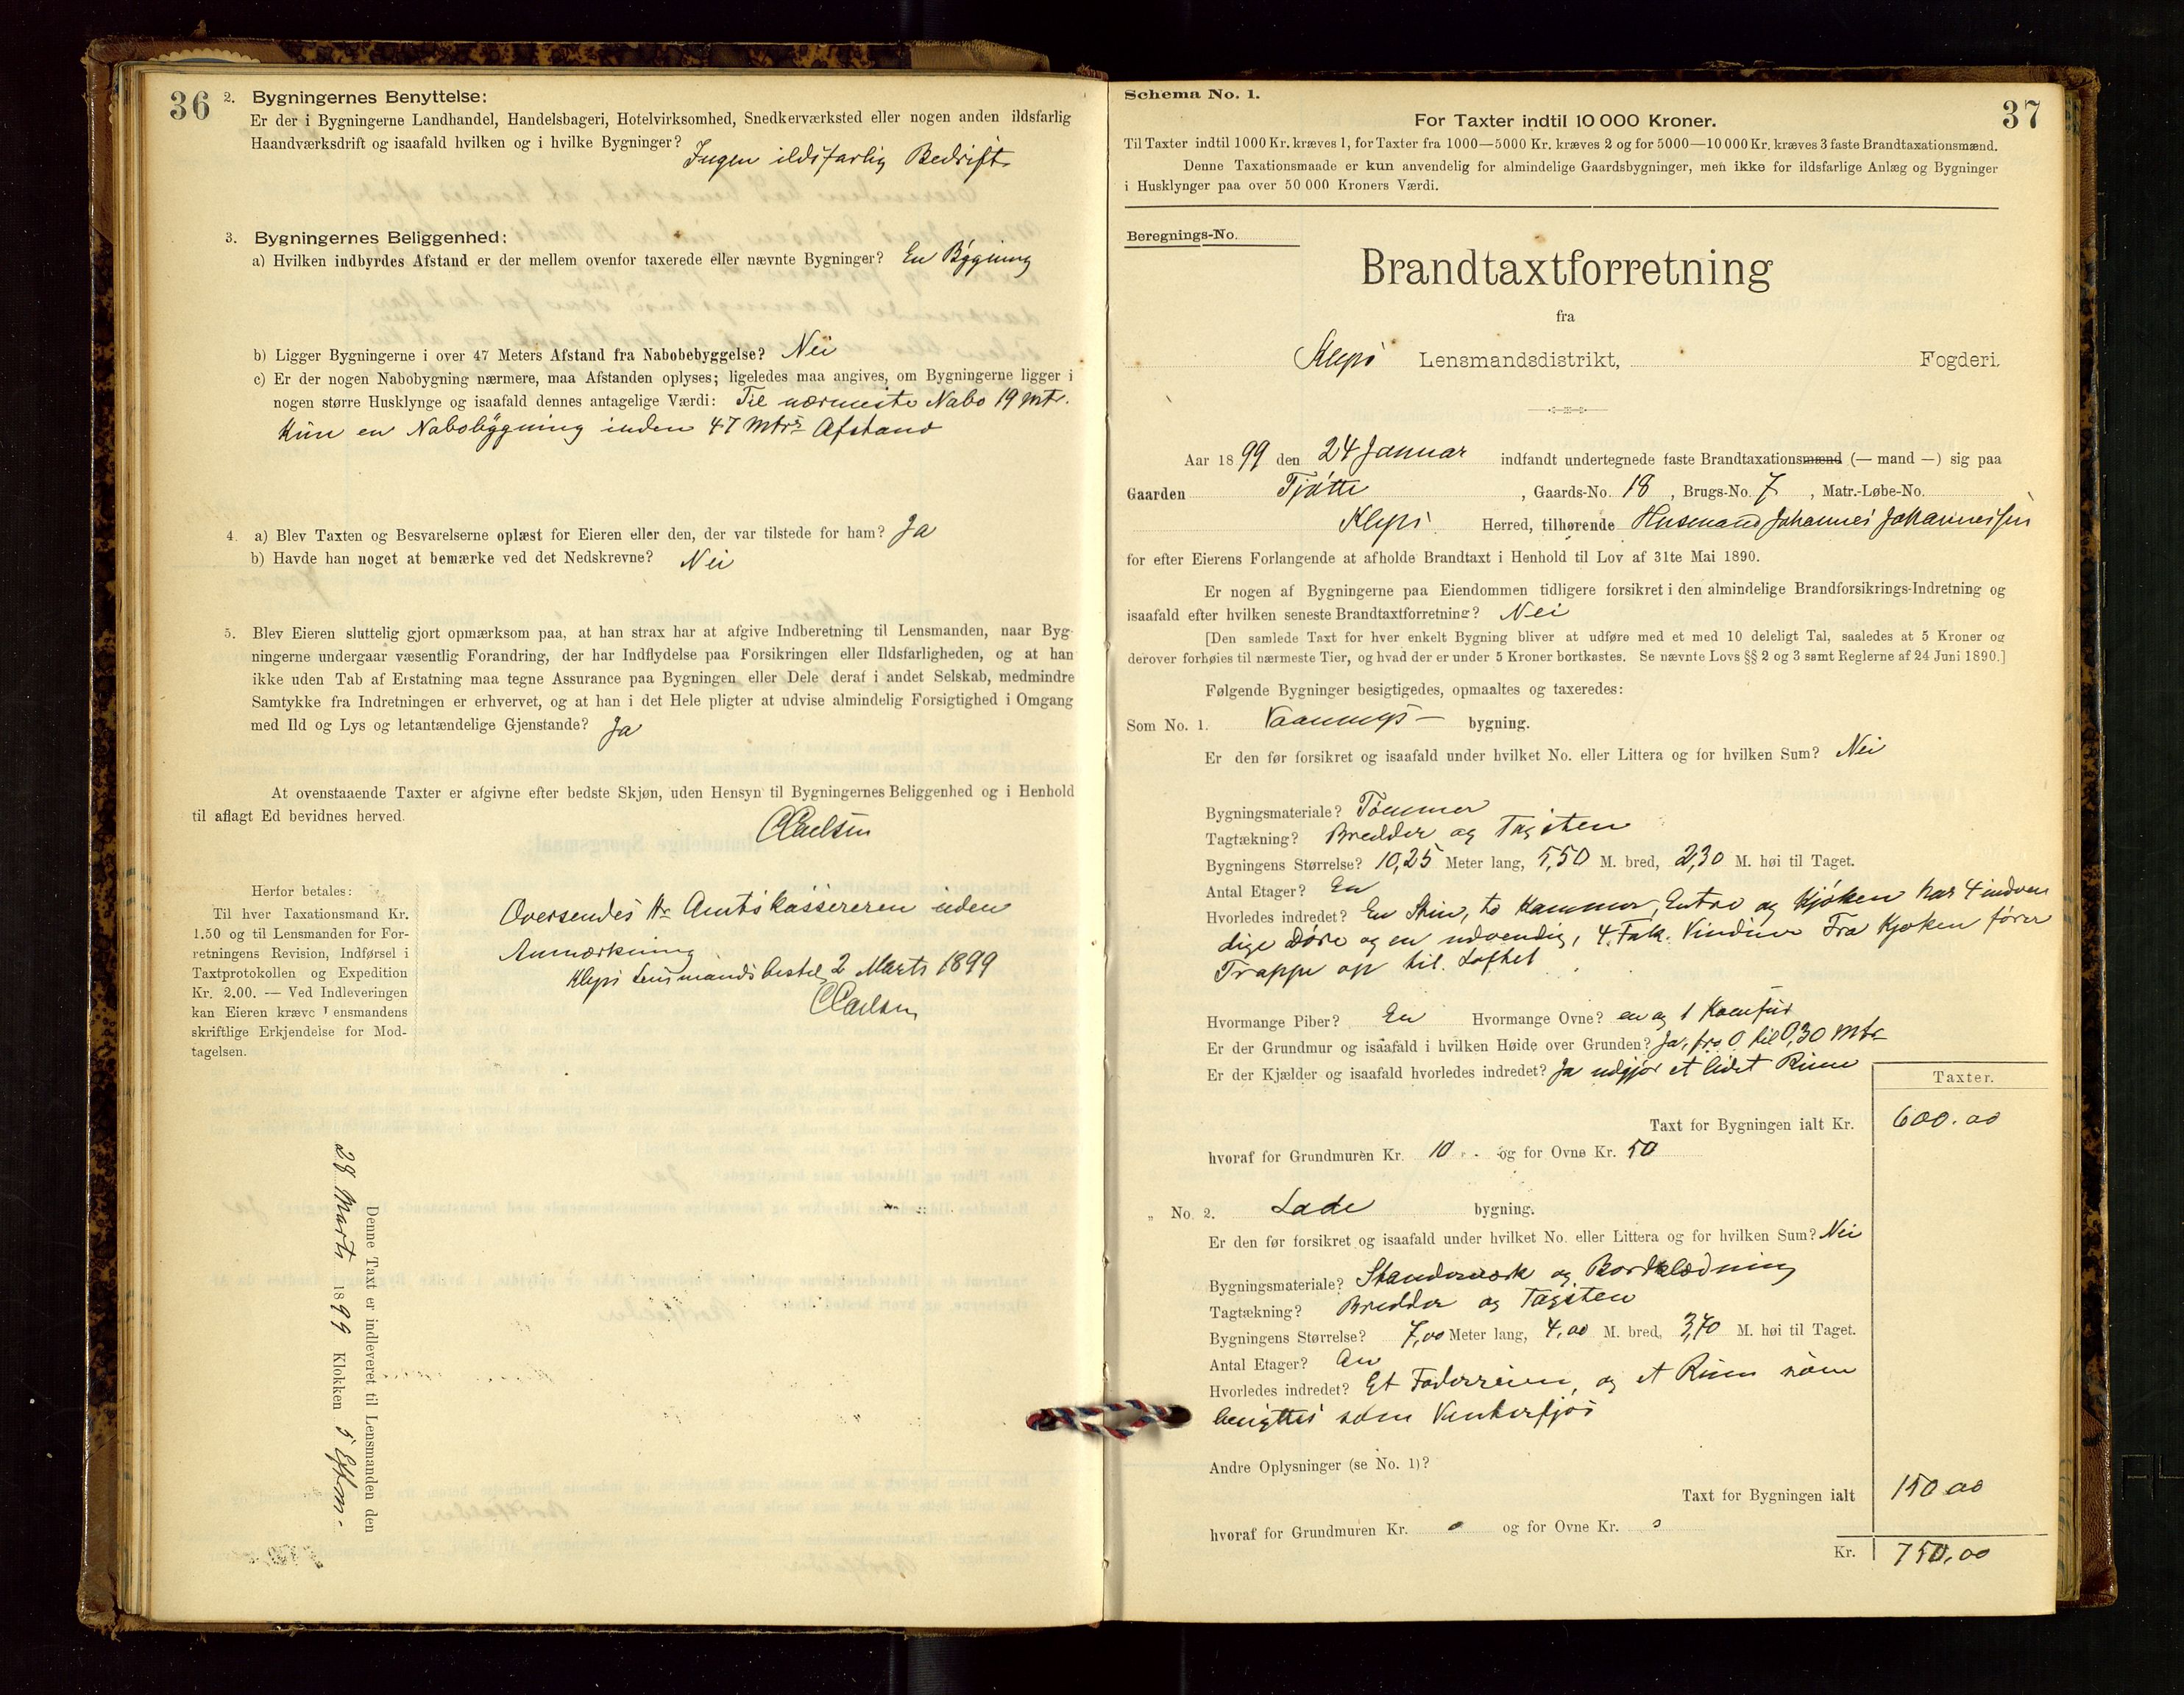 36
2. Bygningernes Benyttelse:
Er der i Bygningerne Landhandel, Handelsbageri, Hotelvirksomhed, Snedkerværksted eller nogen anden ildsfarlig
Haandværksdrift og isaafald hvilken og i hvilke Bygninger? Ingen ildsfarlig Bedrift
3. Bygningernes Beliggenhed:
a) Hvilken indbyrdes Afstand er der mellem ovenfor taxerede eller nævnte Bygninger? En Bygning
b) Ligger Bygningerne i over 47 Meters Afstand fra Nabobebyggelse? Nei
c) Er der nogen Nabobygning nærmere, maa Afstanden oplyses; ligeledes maa angives, om Bygningerne ligger i
nogen større Husklynge og isaafald dennes antagelige Værdi: Til nærmeste Nabo 19 mtr.
Kun en Nabobygning inden 47 Mtrs Afstand
4. a) Blev Taxten og Besvarelserne oplæst for Eieren eller den, der var tilstede for ham? Ja
b) Havde han noget at bemærke ved det Nedskrevne? Nei
5. Blev Eieren sluttelig gjort opmærksom paa, at han strax har at afgive Indberetning til Lensmanden, naar Byg-
ningerne undergaar væsentlig Forandring, der har Indflydelse paa Forsikringen eller Ildsfarligheden, og at han
ikke uden Tab af Erstatning maa tegne Assurance paa Bygningen eller Dele deraf i andet Selskab, medmindre
Samtykke fra Indretningen er erhvervet, og at han i det Hele pligter at udvise almindelig Forsigtighed i Omgang
med Ild og Lys og letantændelige Gjenstande? Ja
At ovenstaaende Taxter er afgivne efter bedste Skjøn, uden Hensyn til Bygningernes Beliggenhed og i Henhold
til aflagt Ed bevidnes herved.
CCarlsen
Herfor betales:
Til hver Taxationsmand Kr.
1.50 og til Lensmanden for For-
retningens Revision, Indførsel i
Taxtprotokollen og Expedition
Kr. 2.00. — Ved Indleveringen
kan Eieren kræve Lensmandens
skriftlige Erkjendelse for Mod-
tagelsen.
Oversendes Hr Amtskassereren uden
Anmærkning
Kleps Lensmandsbestil. 2 Marts 1899
CCarlsen
Denne Taxt er indleveret til Lensmanden den
28 Marts 1899 Klokken 5 Efterm.
Schema No. 1.
37
For Taxter indtil 10 000 Kroner.
Til Taxter indtil 1000 Kr. kræves 1, for Taxter fra 1000—5000 Kr. kræves 2 og for 5000—10 000 Kr. kræves 3 faste Brandtaxationsmænd.
Denne Taxationsmaade er kun anvendelig for almindelige Gaardsbygninger, men ikke for ildsfarlige Anlæg og Bygninger
i Husklynger paa over 50 000 Kroners Værdi.
Beregnings-No.
Brandtaxtforretning
fra
Kleps Lensmandsdistrikt, Fogderi.
Aar 1899 den 24 Januar indfandt undertegnede faste Brandtaxationsmænd (— mand —) sig paa
Gaarden Tjøtte, Gaards-No. 18, Brugs-No. 7, Matr.-Løbe-No.
Kleps Herred, tilhørende Husmand Johannes Johannessen
for efter Eierens Forlangende at afholde Brandtaxt i Henhold til Lov af 31te Mai 1890.
Er nogen af Bygningerne paa Eiendommen tidligere forsikret i den almindelige Brandforsikrings-Indretning og
isaafald efter hvilken seneste Brandtaxtforretning? Nei
[Den samlede Taxt for hver enkelt Bygning bliver at udføre med et med 10 deleligt Tal, saaledes at 5 Kroner og
derover forhøies til nærmeste Tier, og hvad der er under 5 Kroner bortkastes. Se nævnte Lovs §§ 2 og 3 samt Reglerne af 24 Juni 1890.]
Følgende Bygninger besigtigedes, opmaaltes og taxeredes:
Som No. 1. Vaanings— bygning.
Er den før forsikret og isaafald under hvilket No. eller Littera og for hvilken Sum? Nei
Bygningsmateriale? Tømmer
Tagtækning? Bredder og Tagsten
Bygningens Størrelse? 10,25 Meter lang, 5,50 M. bred, 2,30 M. høi til Taget.
Antal Etager? En
Hvorledes indredet? En Stue, to Kammer, Entre og Kjøken har 4 indven
dige Døre og en udvendig, 4. Fak. Vinduer Fra Kjøken fører
Trappe op til Loftet
Hvormange Piber? En Hvormange Ovne? en og 1 Komfur
Er der Grundmur og isaafald i hvilken Høide over Grunden? Ja, fra 0 til 0,30 Mtr
Er der Kjælder og isaafald hvorledes indredet? Ja udgjør et lidet Rum
Taxter.
Taxt for Bygningen ialt Kr. 600.00
hvoraf for Grundmuren Kr. 10 og for Ovne Kr. 50
„ No. 2. Lade bygning.
Er den før forsikret og isaafald under hvilket No. eller Littera og for hvilken Sum? Nei
Bygningsmateriale? Standerværk og Bordklædning
Tagtækning? Bredder og Tagsten
Bygningens Størrelse? 7,00 Meter lang, 4,00 M. bred, 3,70 M. høi til Taget.
Antal Etager? En
Hvorledes indredet? Et Foderrum, og et Rum som
benyttes som Vinterfjøs
Andre Oplysninger (se No. 1)?
Taxt for Bygningen ialt 150.00
hvoraf for Grundmuren Kr. 0 og for Ovne Kr. 0
Kr. 750,00